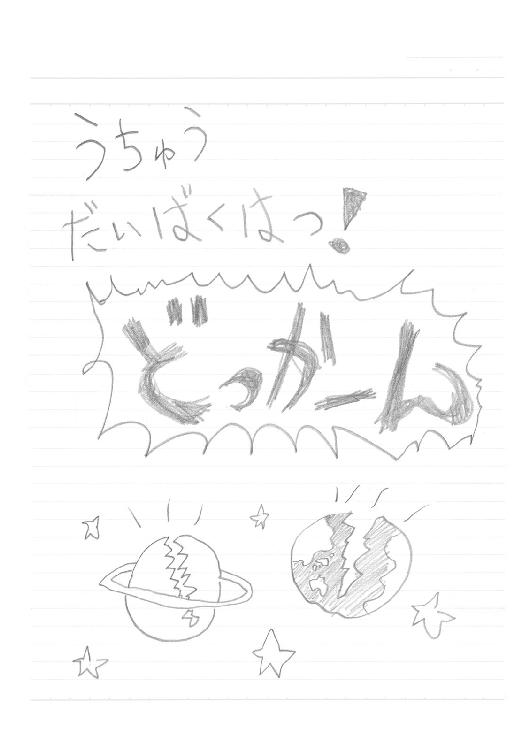 うちゅう
だいばくはっ!
どっかーん